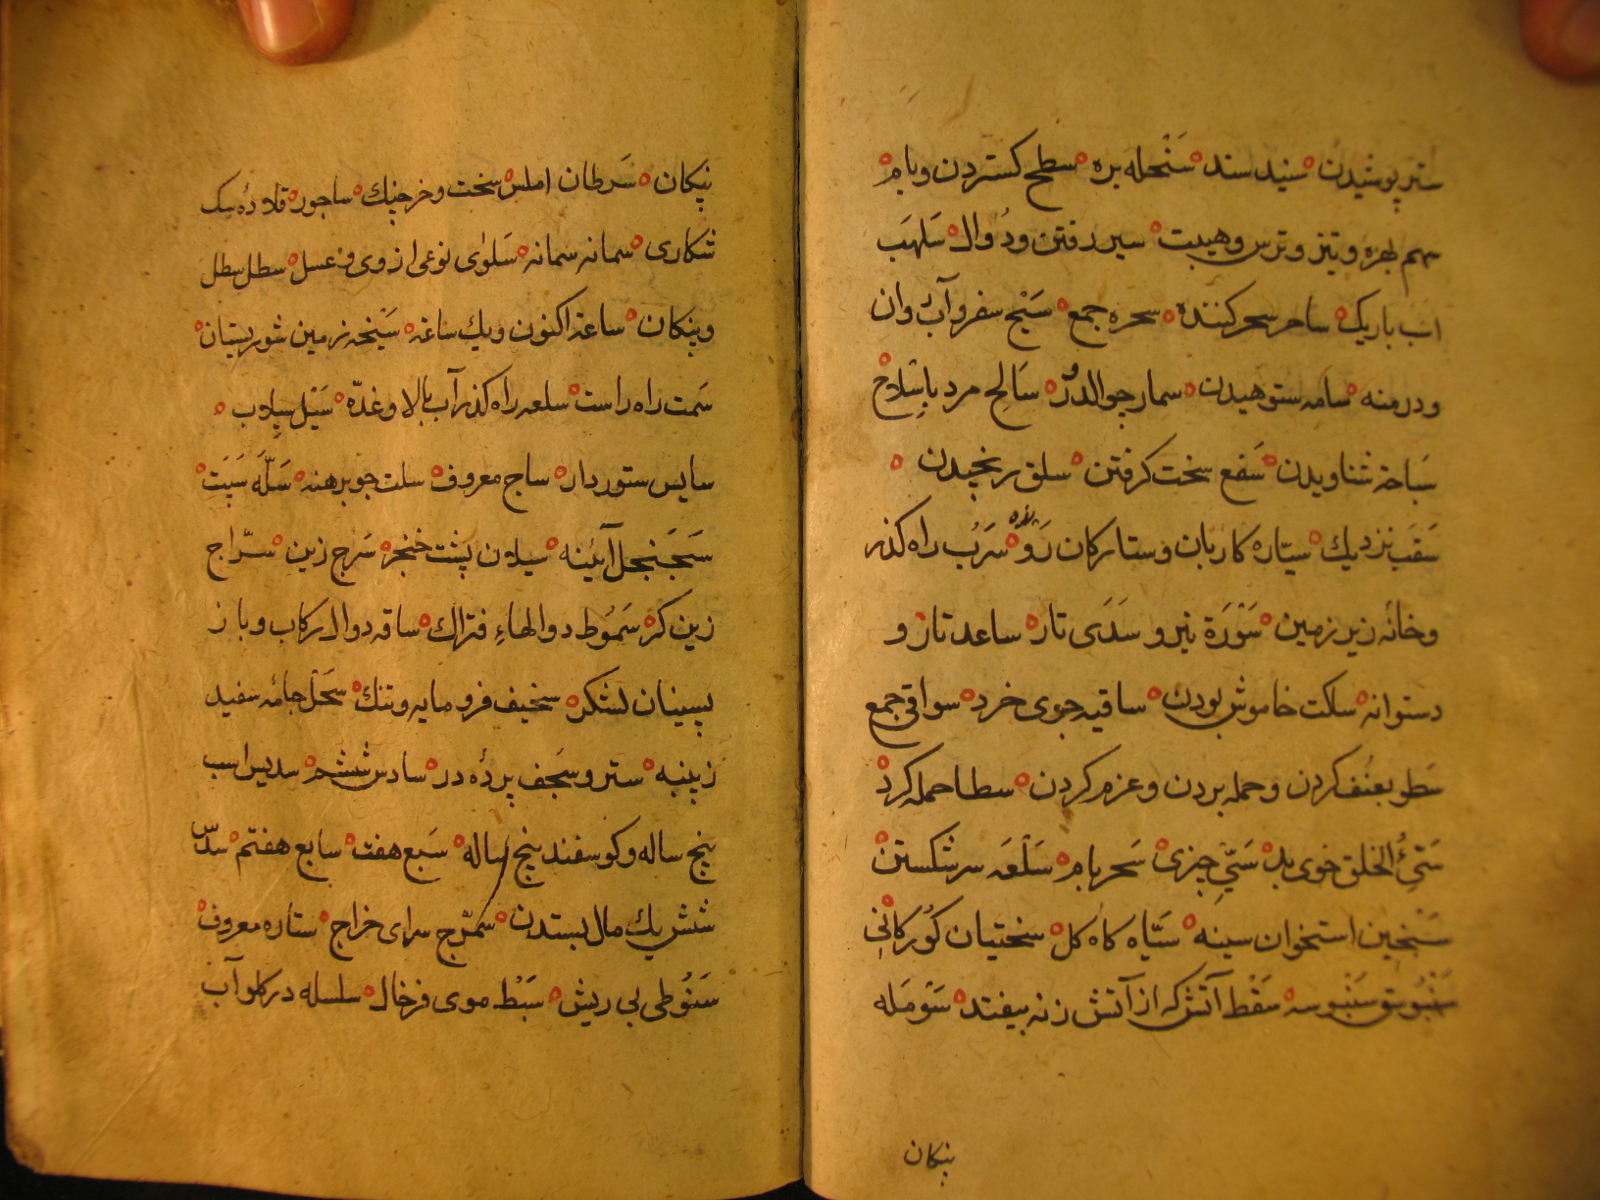 ستر پوشیدن ه سنید سند ه سَنْحله بره ه سطح کستردن وبام ه
سهم بهره و تیز و ترس و هیبت ه سیر رفتن ودُوال ه سَلهَب
اسب باریک ه ساحر سحر کننده ه سحره جمع ه سَیْح سفر وآب وان
ودرمنه ه سامه ستوهیدن ه سمار جوالدوز ه سَالِح مرد باسِلاح ه
سَباحة شناویدن ه سَفع سخت کرفتن ه سلق رنجیدن ه
سَقَب نزدیک ه سیّاره کاربان وستارکان رَونده ه سَرَب راه کذر
وخانه زیر زمین ه سَوْرَة نیرو سَدَی تار ه ساعد تاز و
دستوانه ه سکت خاموش بودن ه ساقیه جوی خرد ه سواقی جمع
سَطو بعنُف کردن وحمله بردن وعزم کردن ه سطا حمله کرد ه
سَیِّئُ الخلق خوی بد ه سَیِّئ چیزی ه سَحر بام ه سَلْعَه سر شکستن ه
استخوان سینه ه سَیّاه کاه کل ه سختیان کوزکانی ه
سَنْبُوسق سَنْبوسه ه سَقْط آتش که از آتش زنه بیفتد ه سَوْمَله
پنکان
پنکان ه سَرَطان املس سخت وخرچنک ه ساجور ه قلاده سک
شکاری ه سمانه سمانه ه سَلوٰی نوعی از وی و عسل ه سطل سطل
وپنکان ه ساعة اکنون ویک ساعة ه سَبْخه زمین شورستان ه
سَمت راه راست ه سلعه راه کذر آب بالا وغدّه ه سَیْل سیلاب ه
سایس ستوردار ه ساج معروف ه سلت جو برهنه ه سَلَّه سَبَت ه
سَجَنجل آئینه ه سیلان پشت خنجر ه سَرج زین ه سرّاج
زین کر ه سَمُوط دوالهاءِ فتراک ه ساقه دوال رکاب وباز
پسینان لشکر ه سخیف فرومایه وتنک ه سَحْل جامه سفید
ز پنبه ه ستر وسَجف پردهٔ در ه سادس ششم ه سدیس اسب
پنج ساله وکوسفند پنج ساله ه سَبع هفت ه سابع هفتم ه سدّس
شش یک مال بستدن ه سمرّج سرای خراج ه ستاره معروف ه
سَنُوطی بی ریش ه سَبْط موی فرخال ه سلسله در کلو آب